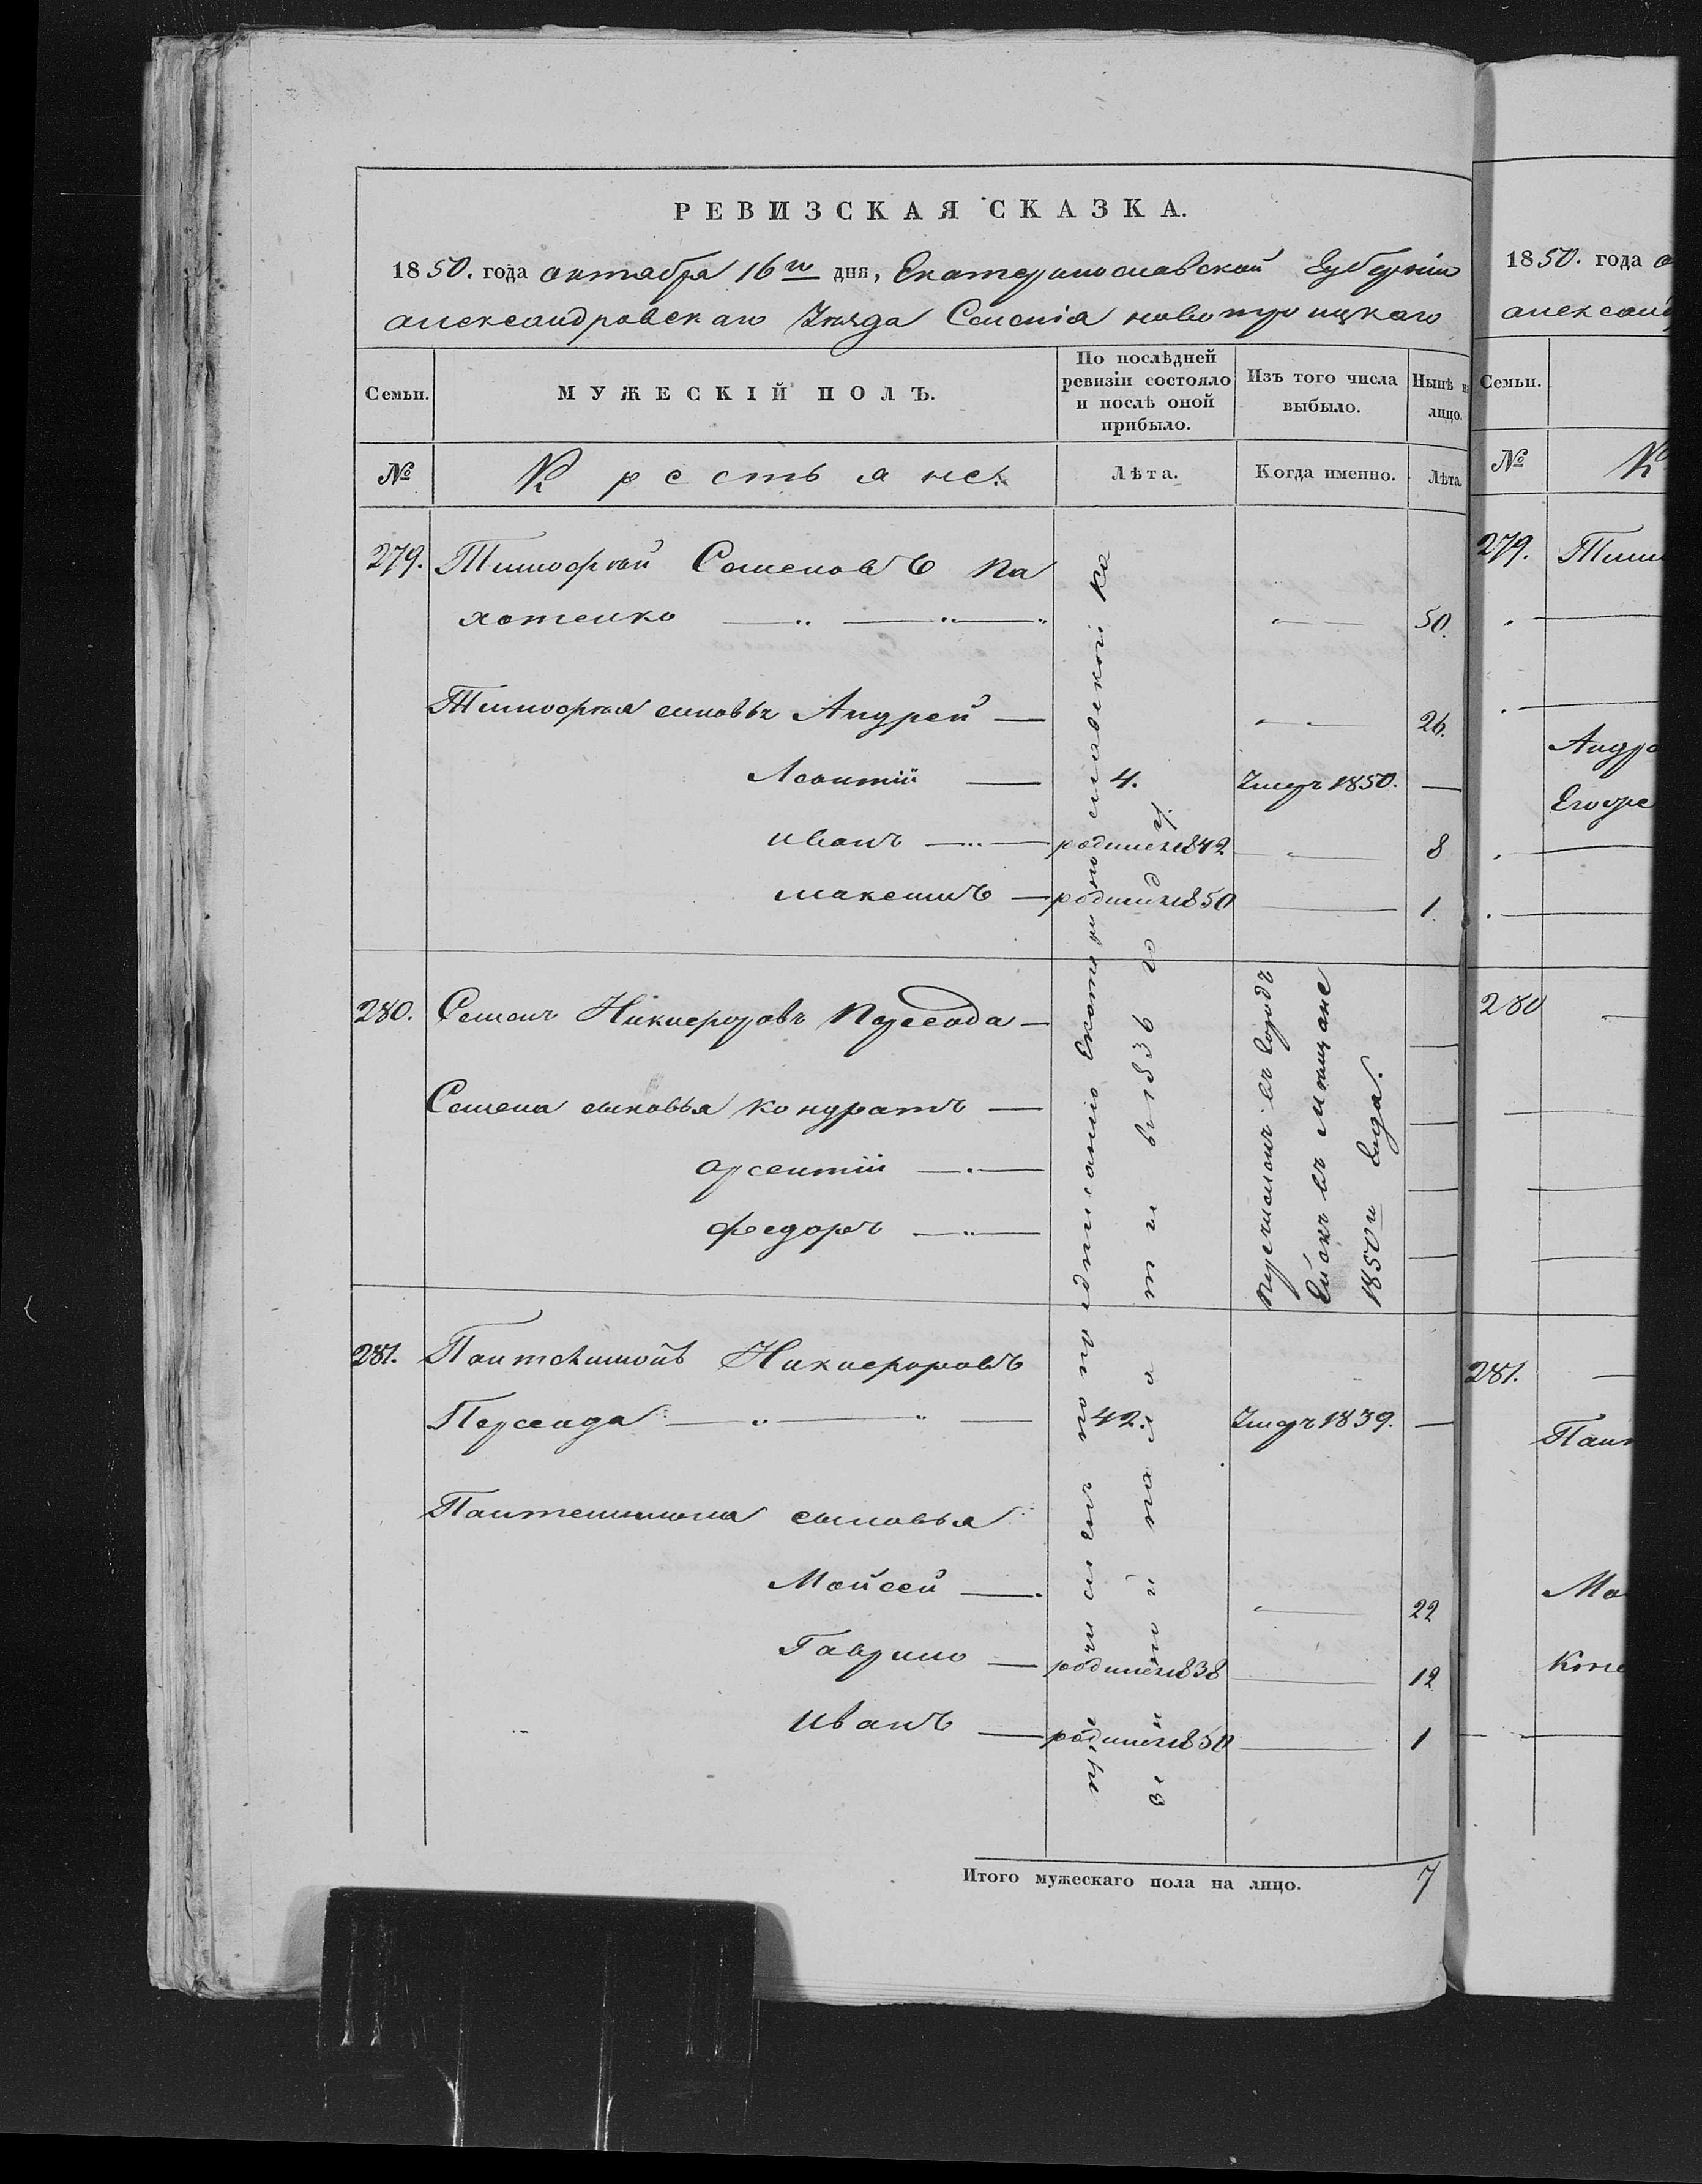 РЕВИЗСКАЯ СКАЗКА.
1850. года октября 16го дня, Екатеринославской Губернии
александровскаго Уезда Селения новотроицкаго
Семьи.
МУЖЕСКІЙ ПОЛЪ.
По послѣдней ревизіи состояло и послѣ оной прибыло.
Изъ того числа выбыло.
Нынѣ на лицо.
№
Крестьяне.
Лѣта.
Когда именно.
Лѣта.
279. Тимофей Семеновъ Па
хотенко 50.
Тимофея сыновья Андрей 26.
Леонтій 4. Умеръ 1850.
иванъ родился 1842 8
максимъ родился 1850 1.
280. Семенъ Никифоровъ Персода
Семена сыновья кондратъ
арсентій
федоръ
281. Пантелимонъ Никифоровъ
Персода 42. Умеръ 1839.
Пантелимона сыновья
Мойсей 22
Гаврило родился 1838 12
иванъ родился 1850 1
причисленъ по предписанію Екатеринославской ка
зенной палаты въ 1836 году.
Перечисленъ въ Городъ
Ейскъ въ Мещане
1850го Года.
Итого мужескаго пола на лицо. 7
1850. года
Семьи.
№
279.
280
281.